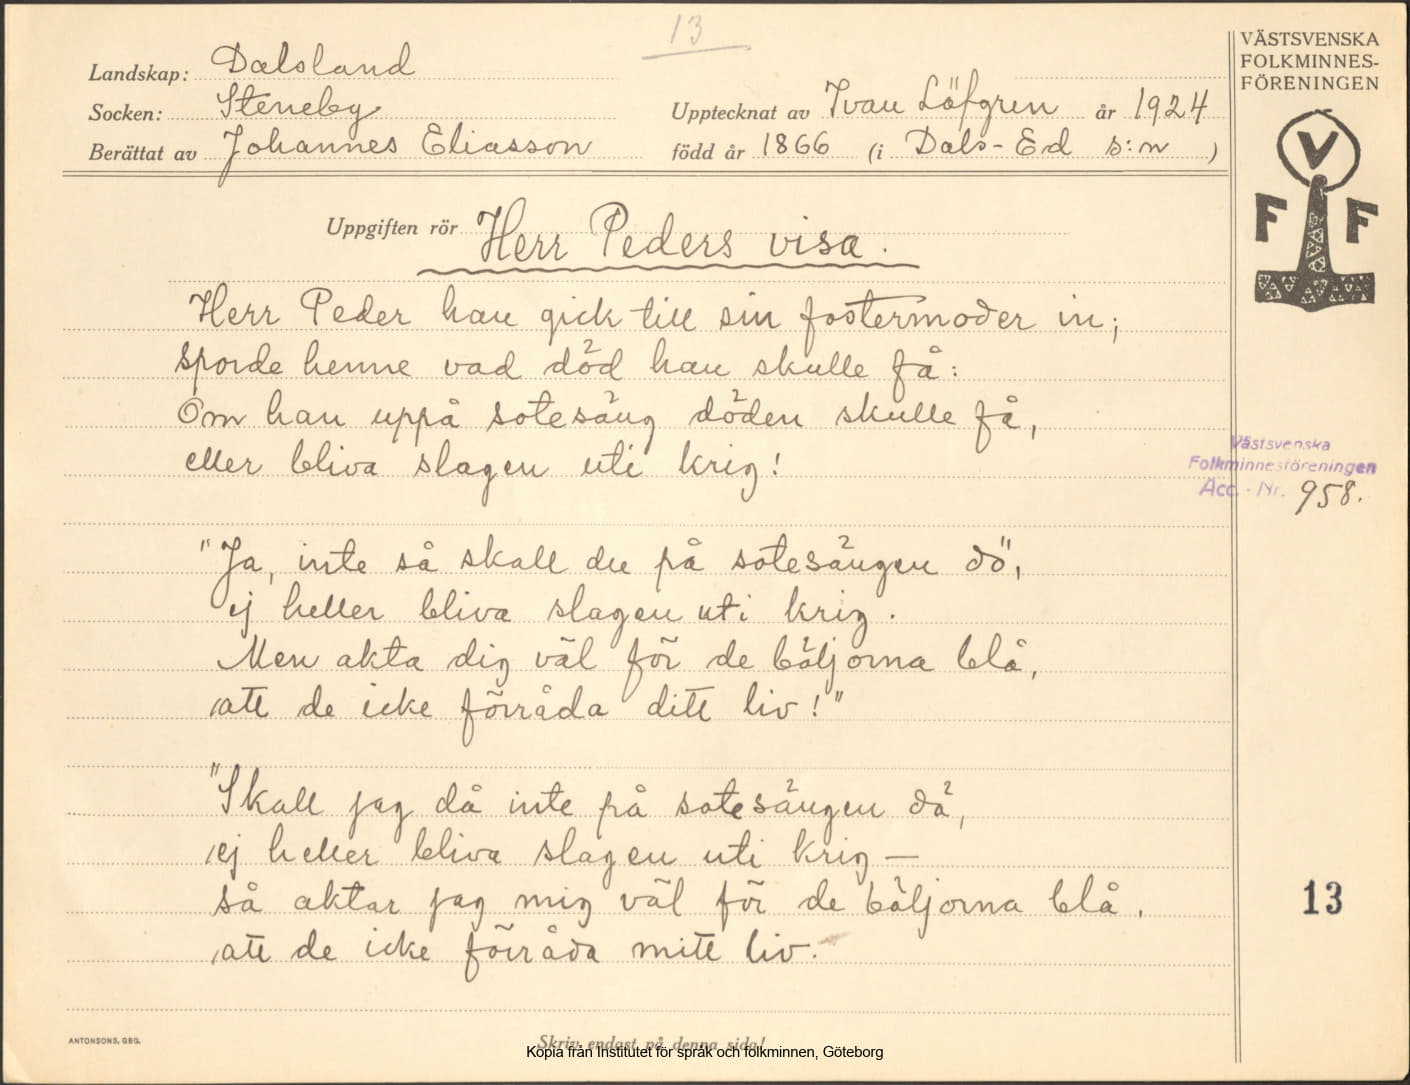 13
Landskap: Dalsland
Socken: Steneby
Upptecknat av Ivan Löfgren år 1924
Berättat av Johannes Eliasson född år 1866 (i Dals-Ed s:n )
VÄSTSVENSKA
FOLKMINNES-
FÖRENINGEN
V
F F
Uppgiften rör Herr Peders visa.
Herr Peder han gick till sin fostermoder in;
sporde henne vad död han skulle få:
Om han uppå sotesäng döden skulle få,
eller bliva slagen uti krig!
Västsvenska
Folkminnesföreningen
Acc. - Nr. 958.
"Ja, inte så skall du på sotesängen dö",
ej heller bliva slagen uti krig.
Men akta dig väl för de böljorna blå,
att de icke förråda ditt liv!"
"Skall jag då inte på sotesängen dö,
ej heller bliva slagen uti krig —
så aktar jag mig väl för de böljorna blå,
att de icke förråda mitt liv.
13
ANTONSONS, GBG.
Skriv endast på denna sida!
Kopia från Institutet för språk och folkminnen, Göteborg